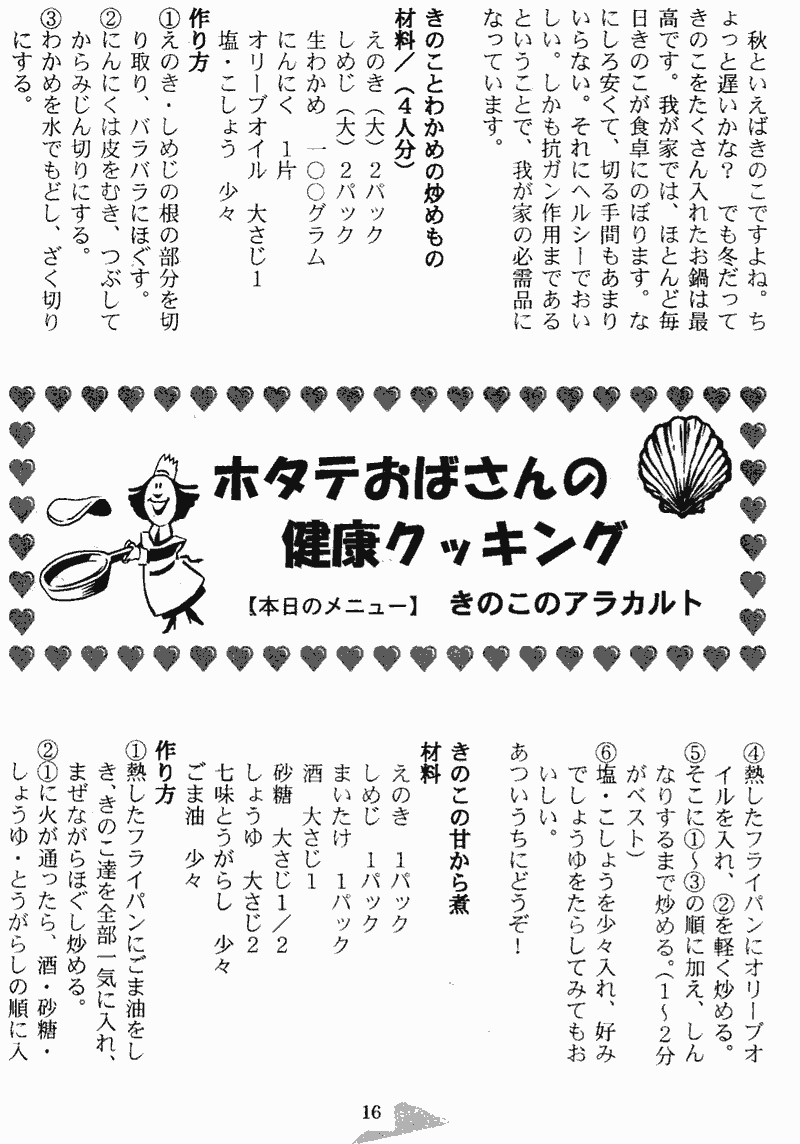 秋といえばきのこですよね。ち
ょっと遅いかな？　でも冬だって
きのこをたくさん入れたお鍋は最
高です。我が家では、ほとんど毎
日きのこが食卓にのぼります。な
にしろ安くて、切る手間もあまり
いらない。それにヘルシーでおい
しい。しかも抗ガン作用まである
ということで、我が家の必需品に
なっています。
きのことわかめの炒めもの
材料／（４人分）
えのき（大）２パック
しめじ（大）２パック
生わかめ　一〇〇グラム
にんにく　１片
オリーブオイル　大さじ１
塩・こしょう　少々
作り方
①えのき・しめじの根の部分を切
り取り、バラバラにほぐす。
②にんにくは皮をむき、つぶして
からみじん切りにする。
③わかめを水でもどし、ざく切り
にする。
ホタテおばさんの
健康クッキング
【本日のメニュー】　きのこのアラカルト
④熱したフライパンにオリーブオ
イルを入れ、②を軽く炒める。
⑤そこに①～③の順に加え、しん
なりするまで炒める。（１～２分
がベスト）
⑥塩・こしょうを少々入れ、好み
でしょうゆをたらしてみてもお
いしい。
あついうちにどうぞ！
きのこの甘から煮
材料
えのき　１パック
しめじ　１パック
まいたけ　１パック
酒　大さじ１
砂糖　大さじ１／２
しょうゆ　大さじ２
七味とうがらし　少々
ごま油　少々
作り方
①熱したフライパンにごま油をし
き、きのこ達を全部一気に入れ、
まぜながらほぐし炒める。
②①に火が通ったら、酒・砂糖・
しょうゆ・とうがらしの順に入
16